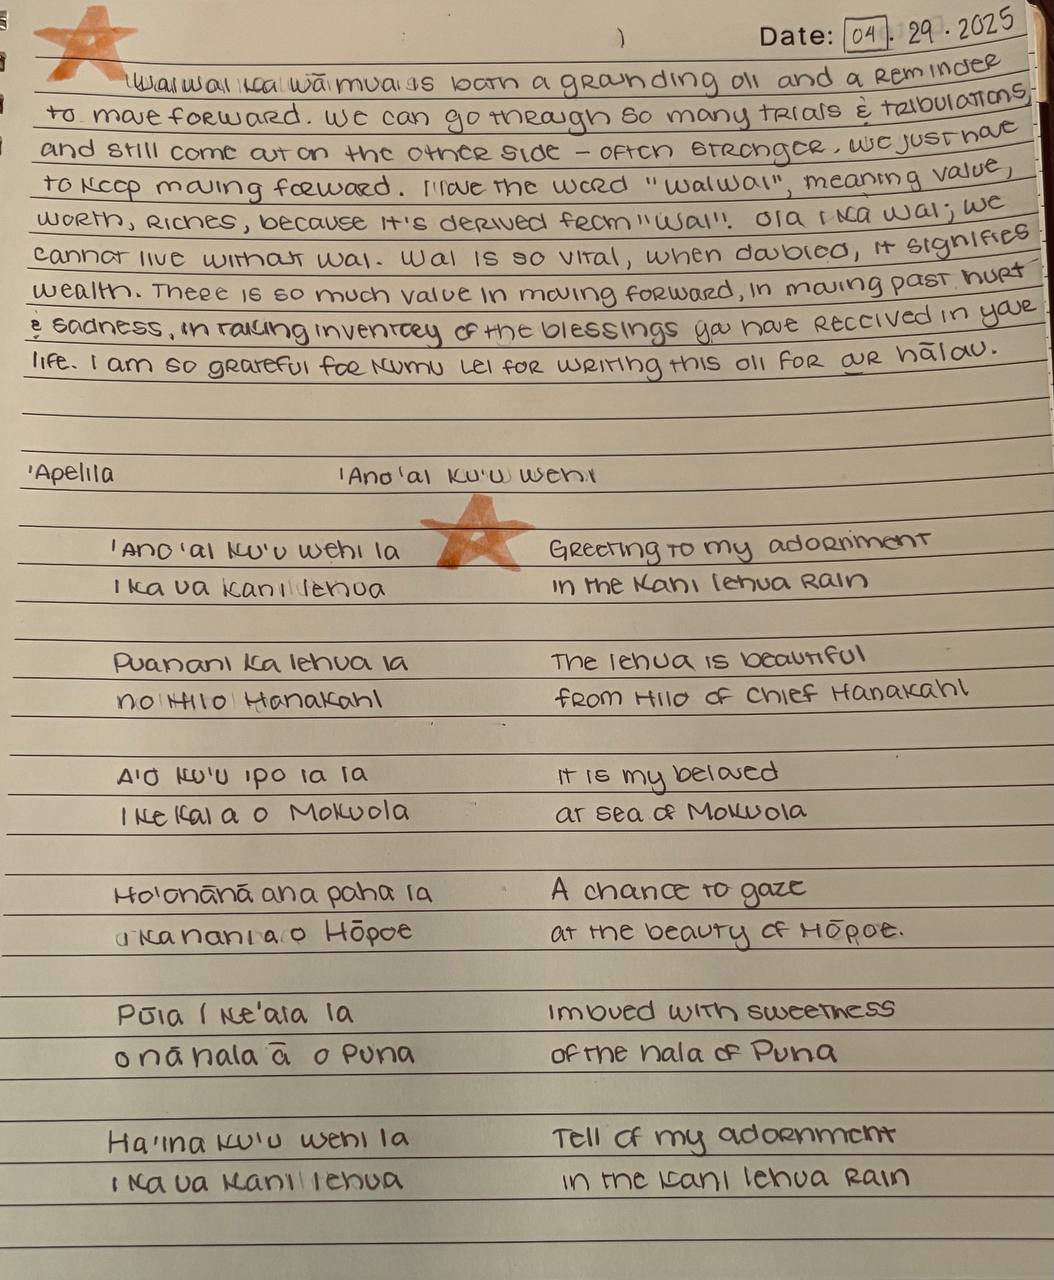 Date: 04.29.2025
Waiwai ka wā mua is both a grounding oli and a reminder
to move forward. We can go through so many trials & tribulations,
and still come out on the other side - often stronger. We just have
to keep moving forward. I love the word "waiwai", meaning value,
worth, riches, because it's derived from "wai". Ola i ka wai; we
cannot live without wai. Wai is so vital, when doubled, it signifies
wealth. There is so much value in moving forward, in moving past hurt
& sadness, in taking inventory of the blessings you have received in your
life. I am so grateful for Kumu Lei for writing this oli for our hālau.
'Apelila
'Ano'ai Ku'u Wehi
'Ano'ai ku'u wehi la
Greeting to my adornment
I ka ua kani lehua
in the Kani lehua rain
Puanani ka lehua la
The lehua is beautiful
no Hilo Hanakahi
from Hilo of Chief Hanakahi
A'o ku'u ipo ia la
It is my beloved
I ke kai a o Mokuola
at sea of Mokuola
Ho'onānā ana paha la
A chance to gaze
i ka nani a o Hōpoe
at the beauty of Hōpoe.
Pūia i ke'ala la
Imbued with sweetness
o nā hala ā o Puna
of the hala of Puna
Ha'ina ku'u wehi la
Tell of my adornment
i ka ua kani lehua
in the Kani lehua rain